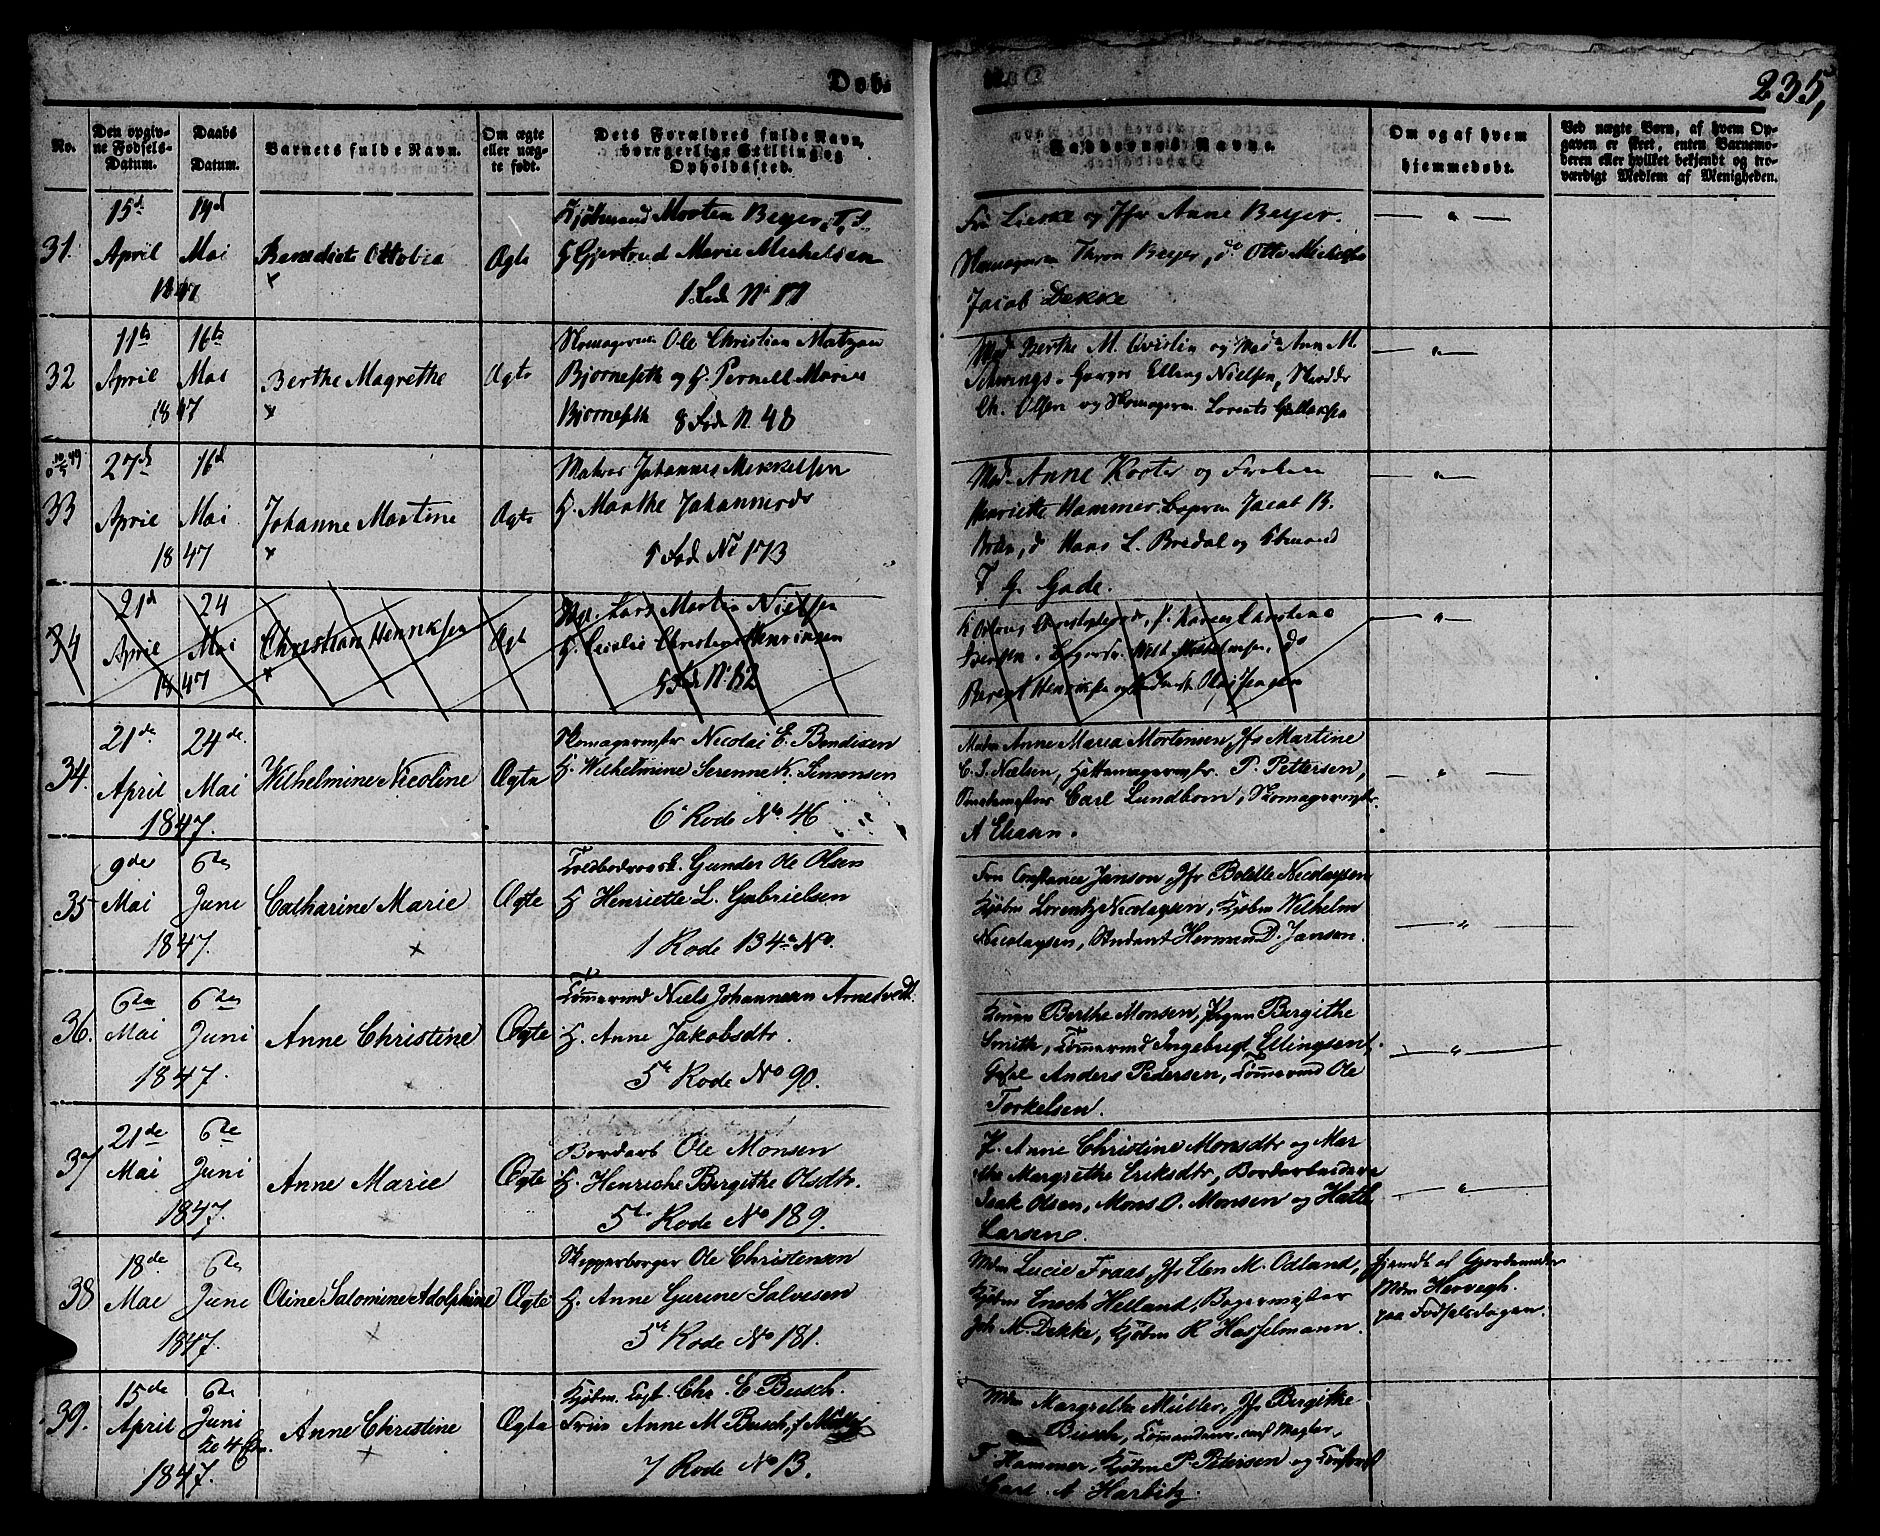 Døb
235,
No.
Den opgivne Fødsels-Datum.
Daabs Datum.
Barnets fulde Navn.
Om ægte eller uægte født.
Dets Forældres fulde Navn, borgerlige Stilling og Opholdssted.
Faddernes Navne.
Om og af hvem hjemmedøbt.
Ved uægte Børn, af hvem Opgaven er skeet, enten Barnemoderen eller hvilket bekjendt og troværdigt Medlem af Menigheden.
31.
15d April
Mai
1847
Ægte
Morten Beyer
H. Gjertrud Marie Michelsen
og Jfr Anne Beyer.
Beyer, do Otto
Jacob Dekke
32
11te April
16te Mai
1847
Berthe Magrethe
Ægte
Skomagersv. Ole Christian
og H. Pernell Marie
8 Rode N. 48
Mad. Berthe M. og Mad. Ann M.
Elling Nielsen,
Ch. Olsen og Skomagersv. Lorents
33
27d April
16d Mai
1847
Johanne Martine
Ægte
Matros Johannes Mikkelsen
H. Marthe Johannesd.
5 Rod No 173
Mad. Anne og Frøken
Henriette Hammer, Jacob B.
Hans L. Bredal og
T. G. Gade.
34
21d April
24 Mai
1847
Christian Henriksen
Ægt
Lars Martin Nielsen
H. Christine Henriksen
34.
21de April
24de Mai
1847.
Wilhelmine Nicoline
Ægte
Skomagermster Nicolai E. Bendixen
H. Wilhelmine Serenne K. Simonsen
6 Rode No 46
Madm Anne Maria Mortensen, Jfr Martine
C. J. Nielsen, P. Pettersen,
Carl Lundbom, Skomagermstr.
A Eliasen.
35
9de Mai
6te June
1847.
Catharine Marie
Ægte
Gunder Ole Olsen
H Henriette L. Gabrielsen
1 Rode 134 No.
Fru Constance Janson, Jfr Bolette Nicolaysen
Kjøbm Lorentz Nicolaysen, Kjøbm Wilhelm
Nicolaysen, Student Herman D. Janson.
36.
6te Mai
6te Juni
1847.
Anne Christine
Ægte
Tømmermd Niels Johannesen Arnetvedt
H. Anne Jakobsdtr.
5te Rode No 90.
Konen Berthe Monsen, Pigen Bergithe
Smith, Tømmermd Ingebrigt Ellingsen
Anders Pedersen, Tømmermd Ole
Torkelsen.
37
21de Mai
6te Juni
1847.
Anne Marie
Ægte
Bordarb Ole Monsen
H. Henriche Bergithe Olsdtr.
5te Rode No 189.
P. Anne Christine Monsdtr og Mar
the Margrethe Eriksdtr, Bordarbeiderne
Isak Olsen, Mons O. Monsen og
Larsen.
38
18de Mai
6te June
1847.
Oline Salomine Adolphine
Ægte
Skipperborger Ole Christensen
H. Anne Gurine Salvesen
5te Rode No 181.
Mdm Lucie Fraas, Jfr Elen M. Odland,
Kjøbm Enoch Helland, Bagermester
Joh M. Dekke, Kjøbm H Hasselmann.
hjemdt af Gjordemoder
Mdm Herwegh.
paa Fødselsdagen.
39.
15de April
6te Juni
1847.
Anne Christine
Ægte
Chr. E. Busch.
Frue Anne M Busch, f.
7 Rode No 13.
Mdm Margrethe Müller, Jfr Bergithe
Busch,
F Hammer, Kjøbm P. Petersen og
A Harbitz.